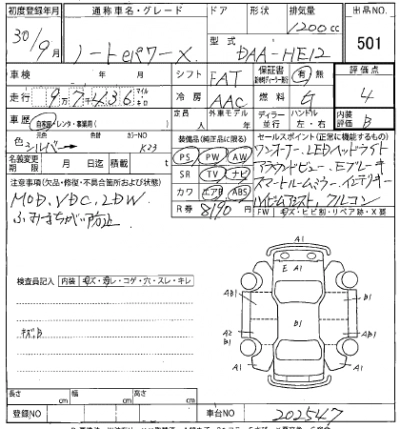 初度登録年月 通称車名・グレード ドア 形状 排気量 出品NO.
30/9月 ノートeパワー X 1200cc 501
型式 DAA-HE12
車検 年 月 シフト FAT 保証書 有 無 評価点
走行 97436 冷房 AAC 燃料 G 4
車歴 自家用・レンタ・事業用 定員 人 外車モデル 年 ディーラー 並行 ハンドル 左・右 内装評価 B
色 シルバー → カラーNO K23
名義変更期限 月 日迄 積載 t
装備品(純正品に限る) セールスポイント(正常に機能するもの)
PS PW AW ワンオーナー、LEDヘッドライト
SR TV ナビ アラウンドビュー、Eブレーキ
カワ エアB ABS スマートルームミラー、インテリキー
R券 8190円 フルコン
FW キズ・ヒビ割・リペア跡・X要
注意事項(欠品・修復・不具合箇所および状態)
MOD、VDC、LDW
ふみまちがい防止
検査員記入 内装 キズ・汚レ・コゲ・穴・スレ・キレ
キズB
A1
E A1
AB1 B1
B1
A2 B1 AB1
A1 A1
長さ cm 幅 cm 高さ cm
登録NO 車台NO 202547